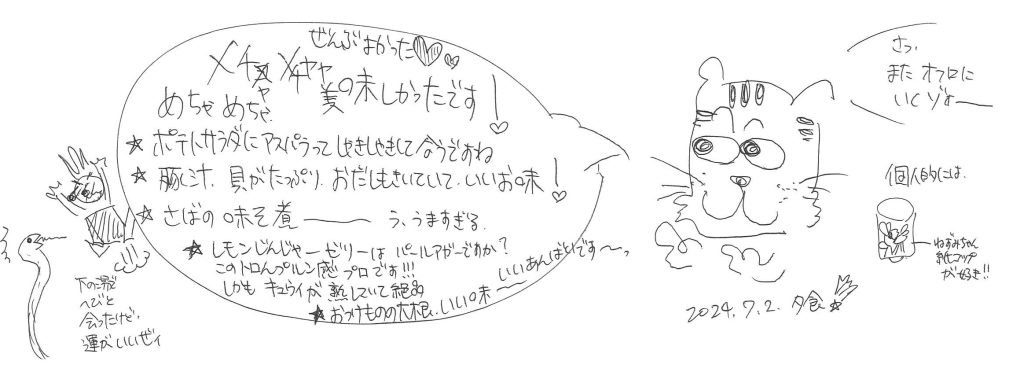 ぜんぶよかった
メチャメチャ
めちゃめちゃ 美の味しかったです!
★ポテトサラダにアスパラってしゃきしゃきして合うですね
★豚し汁、具がたっぷり、おだしもきいていて、いいお味!
★さばの味そ煮――う、うますぎる
★レモンじんじゃーゼリーはパールアガーですか?
このトロンプルン感プロです!!!
しかもキュウイが熟していて絶品
★おつけものの大根、いい味〜
いいあんばいです〜っ
さっ、
また オフロに
いくゾォー
個人的には、
ねずみちゃん
紙コップ
が好き!!
2024.7.2. 夕食☆
下の湯で
へびと
会ったけど、
運がいいぜィ